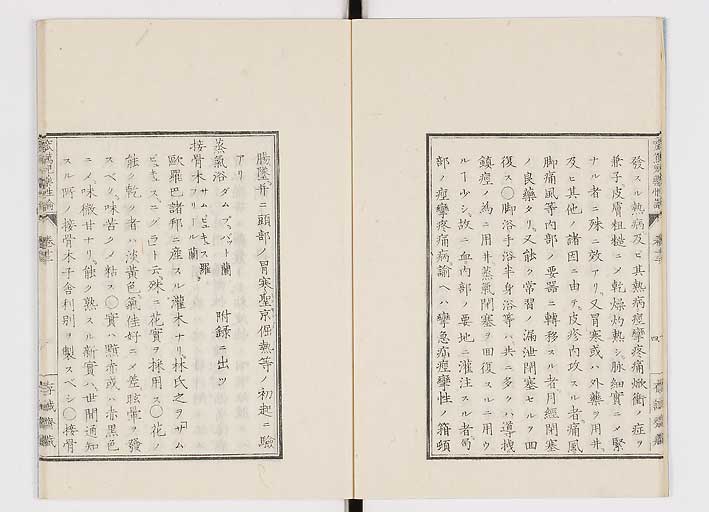 發スル熱病及ヒ其熱病痙攣疼痛焮衝ノ症ヲ
兼子皮膚粗糙ニ〆乾燥灼熱シ脉細實ニ〆緊
ナル者ニ殊ニ效アリ又冒寒或ハ外藥ヲ用井
及ヒ其他ノ諸因ニ由テ皮疹內攻スル者痛風
脚痛風等內部ノ要器ニ轉移スル者月經閉塞
ノ良藥タリ又能ク常習ノ漏泄閉塞セルヲ回
復ス○脚浴手浴半身浴等ハ共ニ多クハ導拽
鎮痙ノ為ニ用井蒸氣閉塞ヲ回復スルニ用ウ
ルヿ少シ故ニ血內部ノ要地ニ灌注スル者
部ノ痙攣疼痛病諭ヘハ攣急疝痙攣性ノ箝頓
四
腸墜井ニ頭部ノ冒寒聖京倔熱等ノ初起ニ驗
アリ
蒸氣浴 ダムプバット蘭 附錄ニ出ツ
接骨木 サムビュキュス羅 フリール蘭
歐羅巴諸邦ニ産スル灌木ナリ林氏之ヲサム
ビュキュスニグラト云殊ニ花實ヲ採用ス○花ノ
能ク乾ク者ハ淡黃色氣佳好ニ〆差眩暈ヲ發
スベク味苦ク〆粘ス○實ハ黯赤或ハ赤黑色
ニ〆味微甘ナリ能ク熟スル新實ハ世間通知
スル阿接骨木子舍利別ヲ製スベシ○接骨